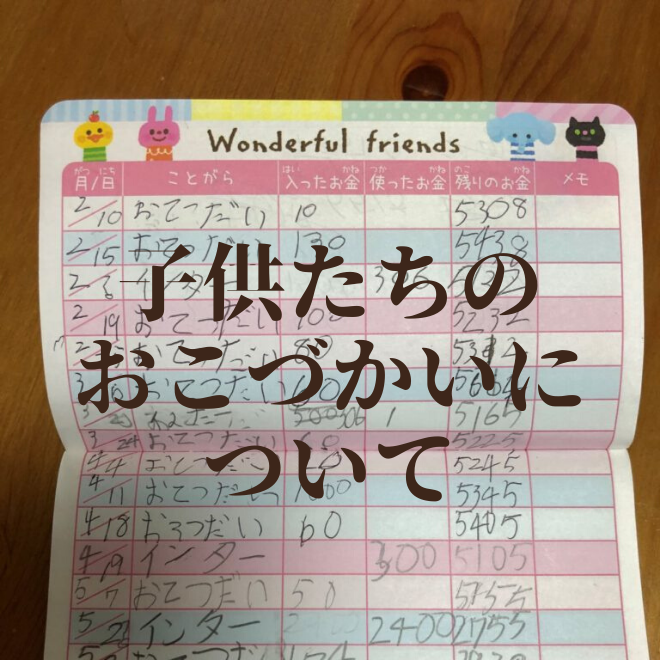 Wonderful friends
がつ にち はい かね つか かね のこ かね
月/日 ことがら 入ったお金 使ったお金 残りのお金 メモ
2/10 おてつだい 10 5308
2/15 おてつだい 130 5438
子供たちの
2/19 おてつだい 100 5232
おこづかいに
3/ おてつだい
5165
3/24 おてつだい 60 5225
ついて
4/4 おてつだい 5245
4/11 おてつだい 5345
4/18 おてつだい 60 5405
4/19 インター 300 5105
5/7 おてつだい 50 5155
5/ インター 2400 2755